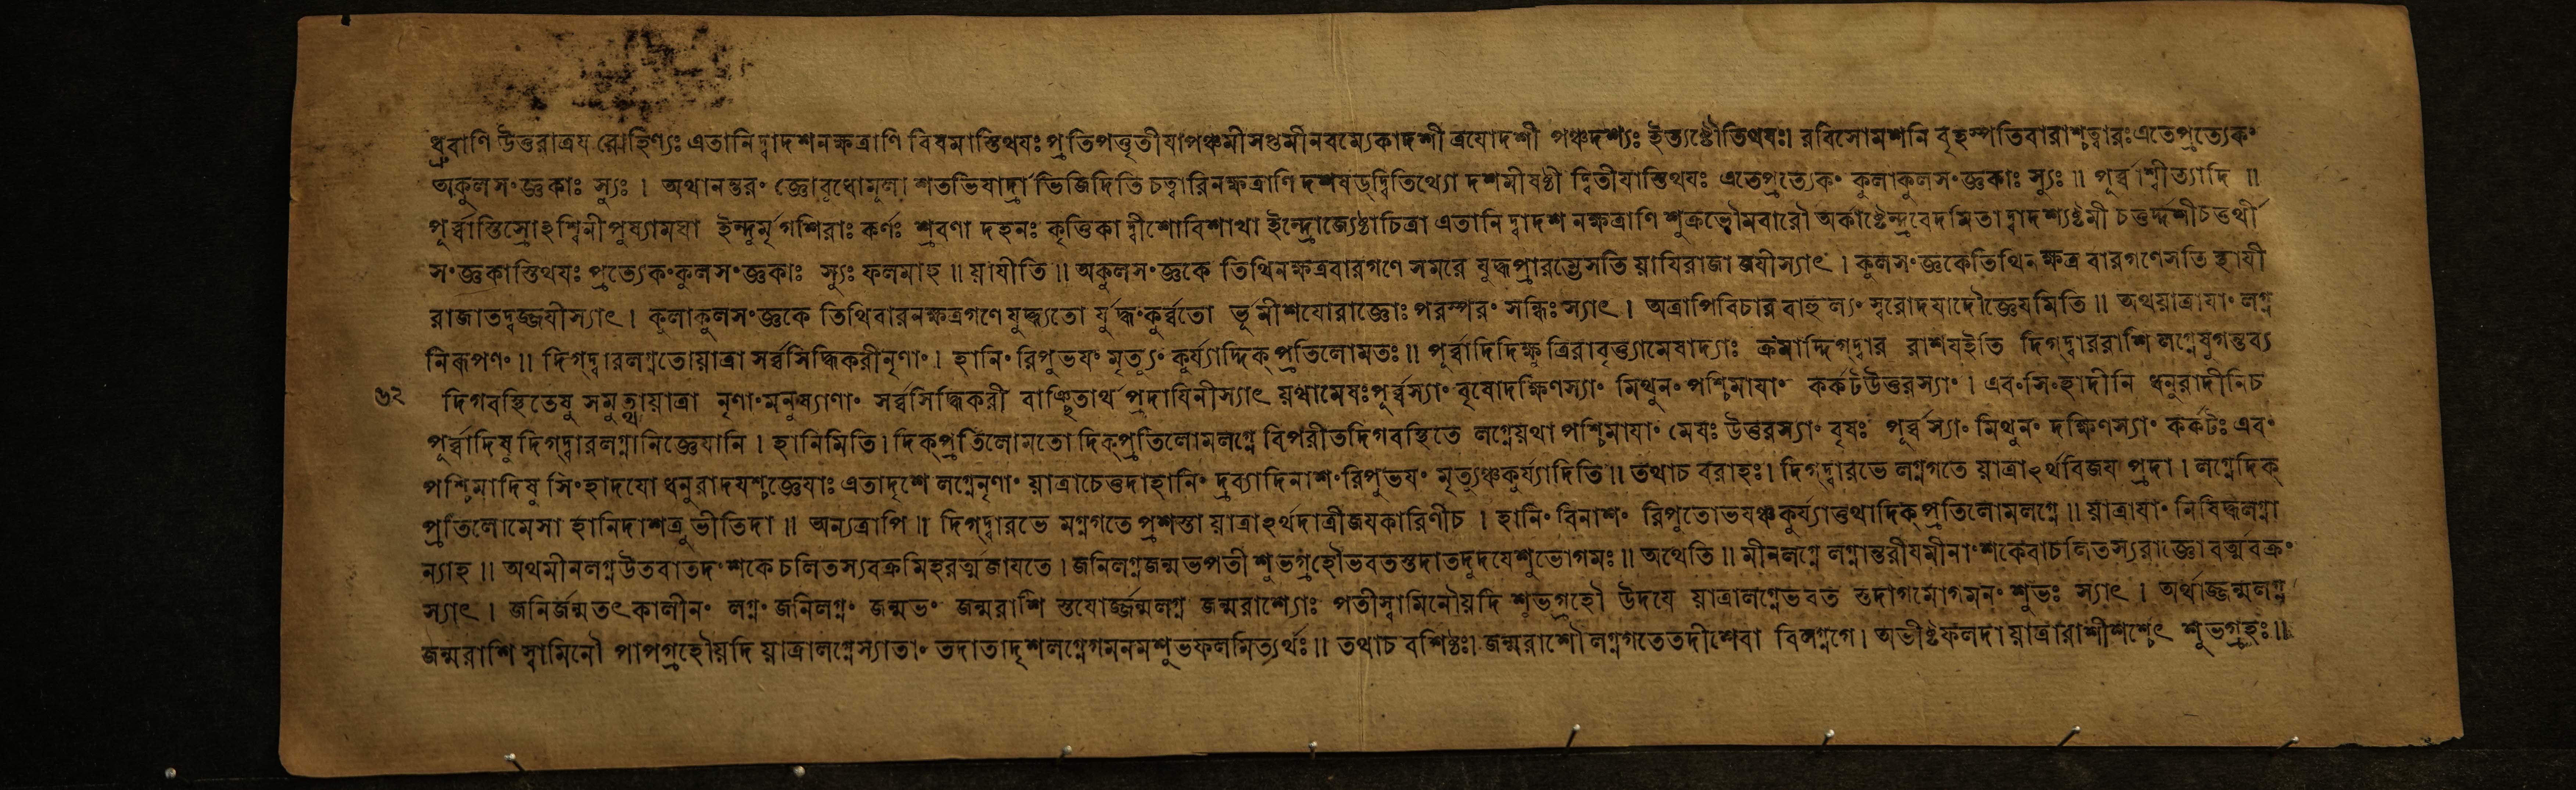 ধ্রুবাণি উত্তরাত্রয রোহিণ্যঃ এতানি দ্বাদশনক্ষত্রাণি বিষমাস্তিথযঃ প্রতিপত্তৃতীযাপঞ্চমীসপ্তমীনবম্যেকাদশী ত্রযোদশী পঞ্চদশ্যঃ ইত্যষ্টৌতিথযঃ। রবিসোমশনি বৃহস্পতিবারাশ্চত্বারঃ এতেপ্রত্যেকং
অকুলসংজ্ঞকাঃ স্যুঃ । অথানন্তরং জ্ঞোবুধোমূলা শতভিষার্দ্রাভিজিদিতি চত্বারিনক্ষত্রাণি দশষড্‌দ্বিতিথ্যো দশমীষষ্ঠী দ্বিতীযাস্তিথযঃ এতেপ্রত্যেকং কুলাকুলসংজ্ঞকাঃ স্যুঃ ॥ পূর্ব্বাশ্বীত্যাদি ॥
পূর্ব্বাস্তিস্রোঽশ্বিনীপুষ্যামঘা ইন্দুর্মৃগশিরাঃ কর্ণঃ শ্রবণা দহনঃ কৃত্তিকা দ্বীশোবিশাখা ইন্দ্রোজ্যেষ্ঠাচিত্রা এতানি দ্বাদশ নক্ষত্রাণি শুক্রভৌমবারৌ অর্কাষ্টেন্দ্রবেদমিতা দ্বাদশ্যষ্টমী চতুর্দ্দশীচতুর্থী
সংজ্ঞকাস্তিথযঃ প্রত্যেকংকুলসংজ্ঞকাঃ স্যুঃ ফলমাহ ॥ য়াযীতি ॥ অকুলসংজ্ঞকে তিথিনক্ষত্রবারগণে সমরে যুদ্ধপ্রারম্ভেসতি য়াযিরাজা জযীস্যাৎ । কুলসংজ্ঞকেতিথিনক্ষত্র বারগণেসতি স্থাযী
রাজাতদ্বজ্জযীস্যাৎ । কুলাকুলসংজ্ঞকে তিথিবারনক্ষত্রগণে যুদ্ধ্যতো র্যুদ্ধংকুর্ব্বতো র্ভূমীশযোরাজ্ঞোঃ পরস্পরং সন্ধিঃ স্যাৎ । অত্রাপিবিচারবাহুল্যং স্বরোদযাদৌজ্ঞেযমিতি ॥ অথয়াত্রাযাং লগ্ন
নিরূপণং ॥ দিগ্‌দ্বারলগ্নতোয়াত্রা সর্ব্বসিদ্ধিকরীনৃণাং । হানিং রিপুভযং মৃত্যুং কুর্য্যাদ্দিক্‌প্রতিলোমতঃ ॥ পূর্ব্বাদিদিক্ষু ত্রিরাবৃত্ত্যামেষাদ্যাঃ ক্রমাদ্দিগ্‌দ্বার রাশযইতি দিগ্‌দ্বাররাশি লগ্নেষুগন্তব্য
৬২ দিগবস্থিতেষু সমুত্থায়াত্রা নৃণাংমনুষ্যাণাং সর্ব্বসিদ্ধিকরী বাঞ্ছিতার্থ প্রদাযিনীস্যাৎ য়থামেষঃপূর্ব্বস্যাং বৃষোদক্ষিণস্যাং মিথুনং পশ্চিমাযাং কর্কটউত্তরস্যাং । এবংসিংহাদীনি ধনুরাদীনিচ
পূর্ব্বাদিষু দিগ্‌দ্বারলগ্নানিজ্ঞেযানি । হানিমিতি । দিক্‌প্রতিলোমতো দিক্‌প্রতিলোমলগ্নে বিপরীতদিগবস্থিতে লগ্নেয়থা পশ্চিমাযাং মেষঃ উত্তরস্যাং বৃষঃ পূর্ব্বস্যাং মিথুনং দক্ষিণস্যাং কর্কটঃ এবং
পশ্চিমাদিষু সিংহাদযো ধনুরাদযশ্চজ্ঞেযাঃ এতাদৃশে লগ্নেনৃণাং য়াত্রাচেত্তদাহানিং দ্রব্যাদিনাশংরিপুভযং মৃত্যুঞ্চকুর্য্যাদিতি ॥ তথাচ বরাহঃ। দিগ্‌দ্বারভে লগ্নগতে য়াত্রাঽর্থবিজয প্রদা । লগ্নেদিক্‌
প্রতিলোমেসা হানিদাশত্রুভীতিদা ॥ অন্যত্রাপি ॥ দিগ্‌দ্বারভে মগ্নগতে প্রশস্তা য়াত্রাঽর্থদাত্রীজযকারিণীচ । হানিং বিনাশং রিপুতোভযঞ্চকুর্য্যাত্তথাদিক্‌প্রতিলোমলগ্নে ॥ য়াত্রাযাং নিষিদ্ধলগ্না
ন্যাহ ॥ অথমীনলগ্নউতবাতদংশকে চলিতস্যবক্রমিহরর্ত্মজাযতে । জনিলগ্নজন্মভপতী শুভগ্রহৌভবতস্তদাতদুদযেশুভোগমঃ ॥ অথেতি ॥ মীনলগ্নে লগ্নান্তরীযমীনাংশকেবাচলিতস্যরাজ্ঞো বর্ত্মবক্রং
স্যাৎ । জনির্জন্মতৎকালীনং লগ্নং জনিলগ্নং জন্মভং জন্মরাশি স্তযোর্জ্জন্মলগ্ন জন্মরাশ্যোঃ পতীস্বামিনৌয়দি শুভগ্রহৌ উদযে য়াত্রালগ্নেভবত স্তদাগমোগমনং শুভঃ স্যাৎ । অর্থাজ্জন্মলগ্ন
জন্মরাশি স্বামিনৌ পাপগ্রহৌয়দি য়াত্রালগ্নেস্যাতাং তদাতাদৃশলগ্নেগমনমশুভফলমিত্যর্থঃ ॥ তথাচ বশিষ্ঠঃ। জন্মরাশৌ লগ্নগতেতদীশেবা বিলগ্নগে । অভীষ্টফলদা য়াত্রারাশীশশ্চেৎ শুভগ্রহঃ ॥